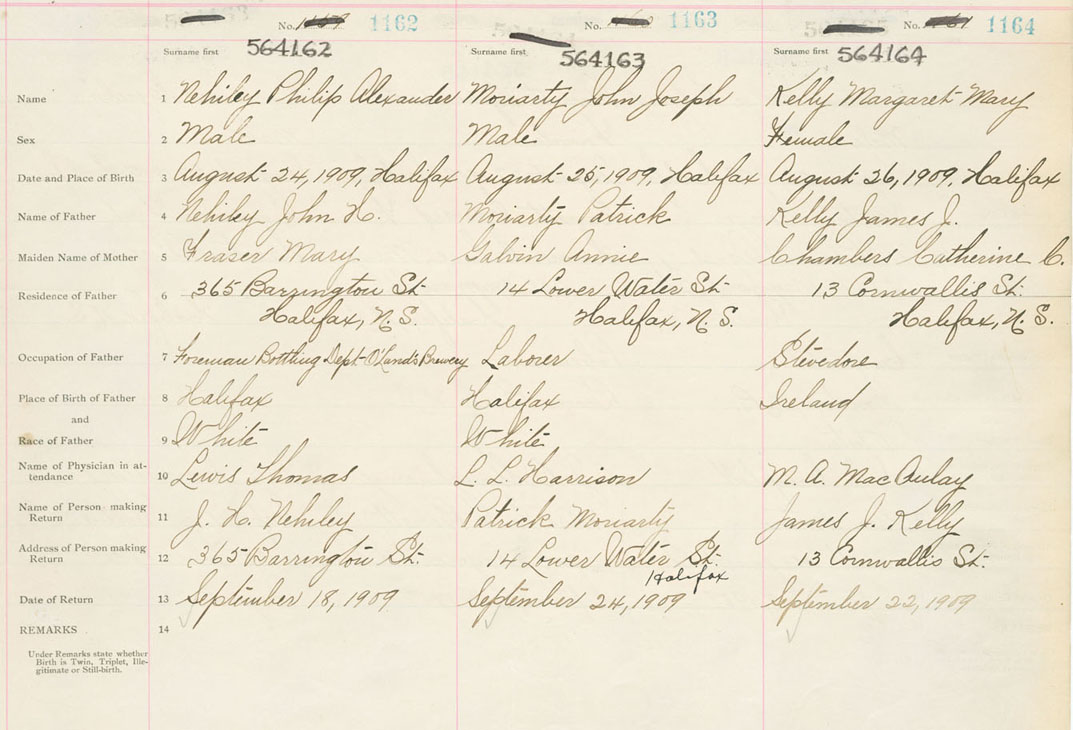 No. 1162 No. 1163 No. 1164
Surname first 564162 Surname first 564163 Surname first 564164
Name 1 Nehiley Philip Alexander Moriarty John Joseph Kelly Margaret Mary
Sex 2 Male Male Female
Date and Place of Birth 3 August 24, 1909, Halifax August 25, 1909, Halifax August 26, 1909, Halifax
Name of Father 4 Nehiley John H. Moriarty Patrick Kelly James J.
Maiden Name of Mother 5 Fraser Mary Galvin Annie Chambers Catherine C.
Residence of Father 6 365 Barrington St. 14 Lower Water St. 13 Cornwallis St.
Halifax, N.S. Halifax, N.S. Halifax, N.S.
Occupation of Father 7 Foreman Bottling Dept O'Land's Brewery Laborer Stevedore
Place of Birth of Father 8 Halifax Halifax Ireland
and
Race of Father 9 White White
Name of Physician in at-
tendance 10 Lewis Thomas L. L. Harrison M. A. MacAulay
Name of Person making
Return 11 J. H. Nehiley Patrick Moriarty James J. Kelly
Address of Person making
Return 12 365 Barrington St. 14 Lower Water St. 13 Cornwallis St.
Halifax
Date of Return 13 September 18, 1909 September 24, 1909 September 22, 1909
REMARKS 14
Under Remarks state whether
Birth is Twin, Triplet, Ille-
gitimate or Still-birth.